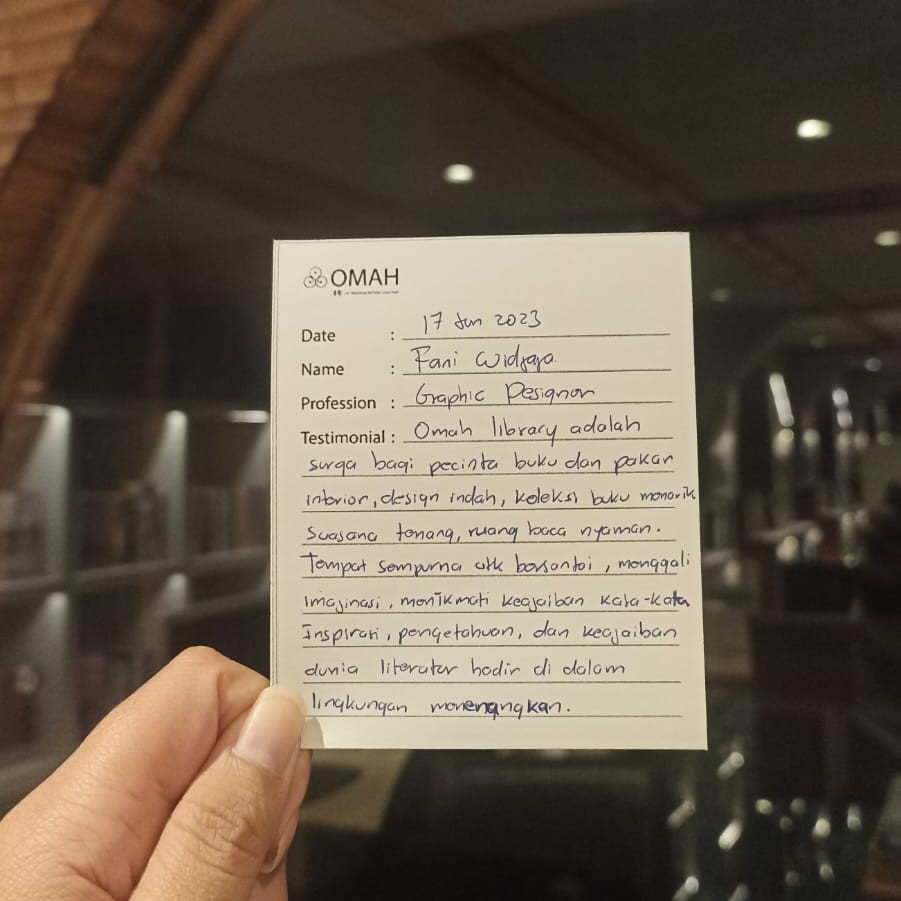 OMAH
Date : 17 Jun 2023
Name : Fani Widjaya.
Profession : Graphic Designer
Testimonial : Omah library adalah
surga bagi pecinta buku dan pakar
interior, design indah, koleksi buku menarik
suasana tenang, ruang baca nyaman.
Tempat sempurna utk bersantai, menggali
imajinasi, menikmati keajaiban kata-kata
Inspirasi, pengetahuan, dan keajaiban
dunia literatur hadir di dalam
lingkungan menenangkan.